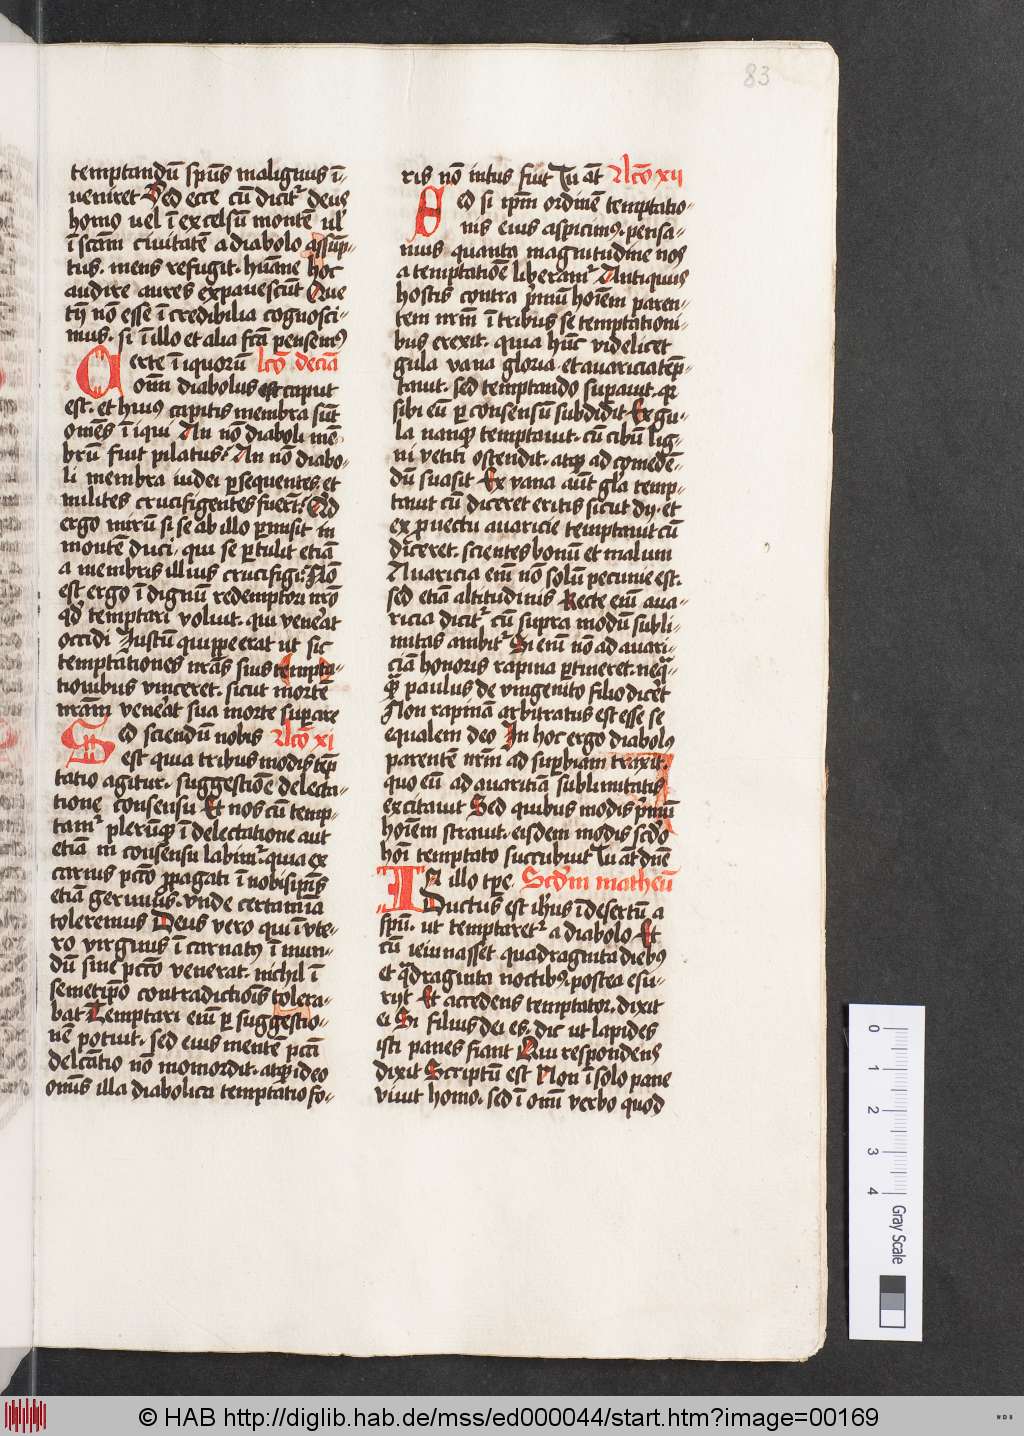 83
temptandū spūs malignus ī-
ueniret Sed ecce cū dicit᷑ deus
homo uel ī excelsum montē ul'
ī scām ciuitatē a diabolo assūp-
tus. mens refugit. hūane hoc
audire aures expauescūt Que
tn̄ nō esse ī credibilia cognosci-
mus. si ī illo et alia fcā pensemꝰ
Certe īiquorū lcō decīa
omī diabolus est caput
est. et huiꝰ capitis membra sūt
omēs īiqui An nō diaboli mē-
brū fuit pilatus? An nō diabo-
li membra iudei ꝑsequentes et
milites crucifigentes fuerūt? Qd
ergo mirū si se ab illo ꝑmisit in
montē duci, qui se ꝑtulit etiā
a membris illius crucifigi? Nō
est ergo īdignū redemptori nr̄o
qd' temptari voluit. qui venēat
occidi Justū quippe erat ut sic
temptationes nrās suis tempta-
tionibus vinceret. sicut mortē
nrām venēat sua morte supare
Sed sciendū nobis Lcō xi
est quia tribus modis tēp
tatio agitur. suggestiōe delecta-
tione consensu Et nos cū temp-
tam᷑ plerūqꝫ ī delectatione aut
etiā in consensu labim᷑. quia ex
carnis pccō ꝓpagati ī nobis ipīs
etiā gerimus. vnde certamīa
toleremus Deus vero qui ī vte-
ro virginis ī carnatꝰ ī mun-
dū sine pccō venerat. nichil ī
semetipō contradictiōis tolera-
bat Temptari eim̄ ꝑ suggestio-
nē potuit. sed eius mentē pccī
delcātio nō momordit. atqꝫ ideo
omīs illa diabolica temptatio fo-
ris nō intus fuit Tu at̄ Lcō xij
Sed si ipm̄ ordinē temptatio-
nis eius aspicimꝰ. pensa-
mus quanta magnitudine nos
a temptatiōe liberam᷑ Antiquus
hostis contra pmū hoīem paren-
tem nrm̄ ī tribus se temptationi-
bus erexit. quia hūc videlicet
gula vana gloria et auaricia tēp-
tauit. sed temptando supauit. qꝛ
sibi eū ꝑ consensū subdidit Ex gu-
la nanqꝫ temptauit. cū cibū lig-
ni vetiti ostendit. atqꝫ ad comedē-
dū suasit Ex vana aūt glīa temp-
tauit cū diceret eritis sicut dij. et
ex ꝓuectu auaricie temptauit cū
dīceret. scientes bonū et malum
Auaricia eim̄ nō solū pecunie est.
sed etiā altitudinis Recte eim̄ aua-
ricia dicit᷑ cū supra modū subli-
mitas ambit᷑ Si enī nō ad auari-
ciā honoris rapina ꝑtineret. neqᷓ-
qᷓꝫ paulus de vnigenito filio dicēt
Non rapinā arbitratus est esse se
equalem deo In hoc ergo diabolꝰ
parentē nrm̄ ad supbiam traxit.
quo eū ad auaritiā sublimitatis
excitauit Sed quibus modis pmū
hoīem strauit. eisdem modis scdo
hoī temptato succubuit Tu at̄ dnē
In illo tpe. Scdm matheū
Ductus est ihūs ī desertū a
spū. ut temptaret᷑ a diabolo Et
cū ieiunasset quadraginta diebꝰ
et qᷓdraginta noctibꝰ. postea esu-
rijt Et accedens temptator. dixit
ei Si filius dei es. dic ut lapides
isti panes fiant Qui respondens
dixit Scriptū est Non ī solo pane
viuit homo. sed ī omī verbo quod
0 1 2 3 4 Gray Scale
© HAB http://diglib.hab.de/mss/ed000044/start.htm?image=00169